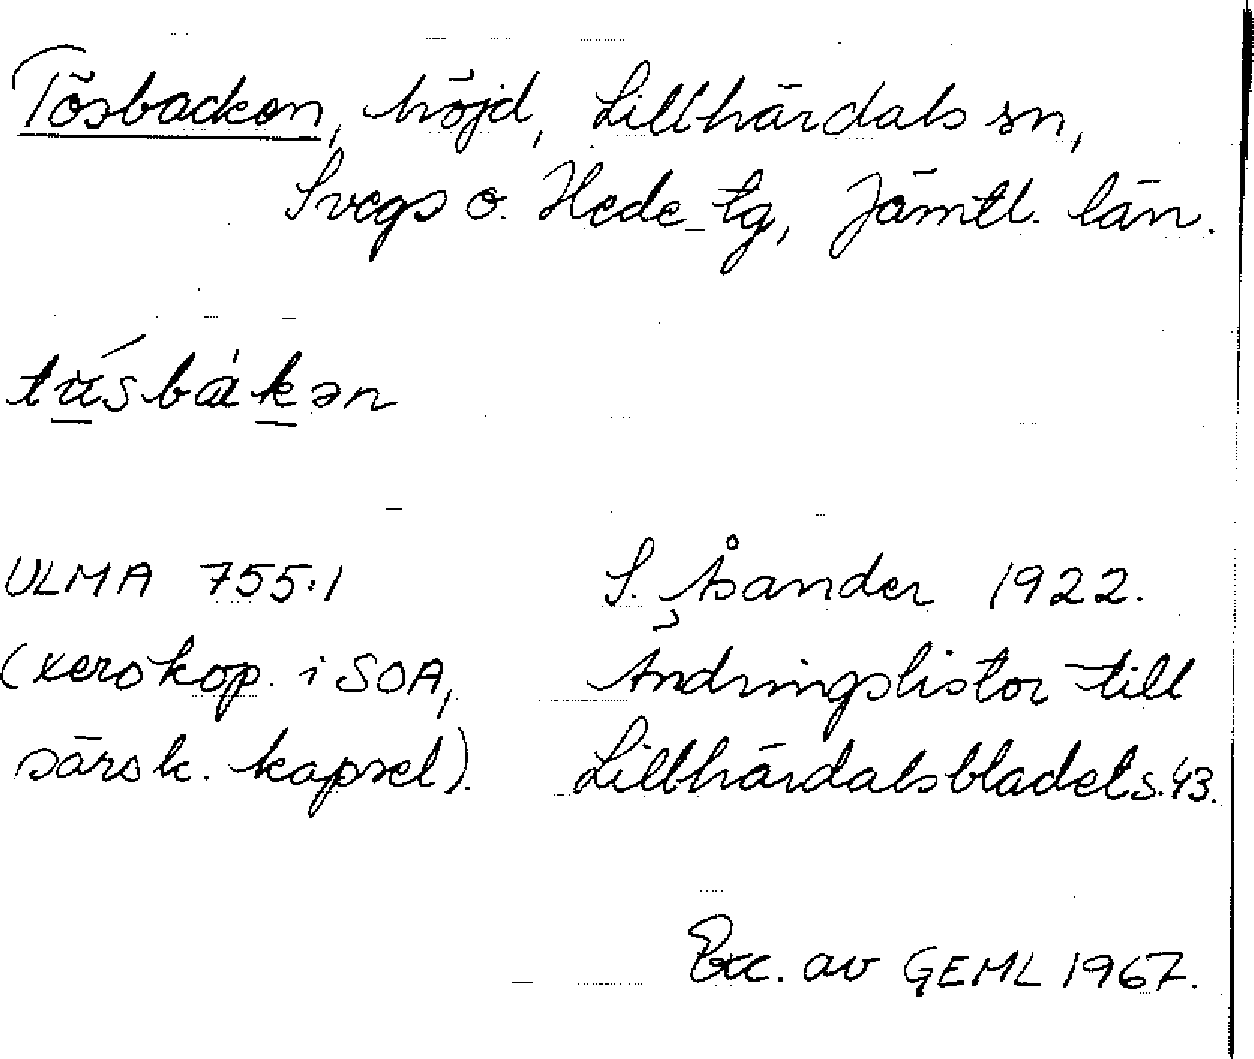 Tösbacken, höjd, Lillhärdals sn,
Svegs o. Hede tg, Jämtl. län.
tú̱sbàḵən
ULMA 755:1
(xerokop. i SOA,
särsk. kapsel).
S. Åsander 1922.
Ändringslistor till
Lillhärdalsbladet s. 43.
Exc. av GEML 1967.